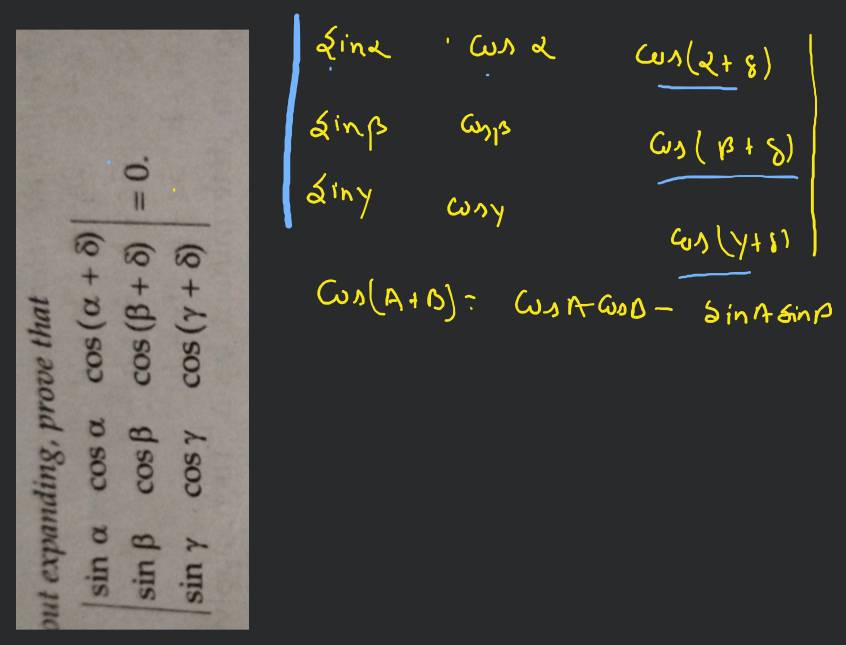 out expanding, prove that
sin α cos α cos (α + δ)
sin β cos β cos (β + δ) = 0.
sin γ cos γ cos (γ + δ)
Sinα cos α cos(α+ δ)
Sinβ cosβ cos(β + δ)
Sinγ cosγ cos(γ+δ)
Cos(A+B)= cosA cosB - SinA SinB